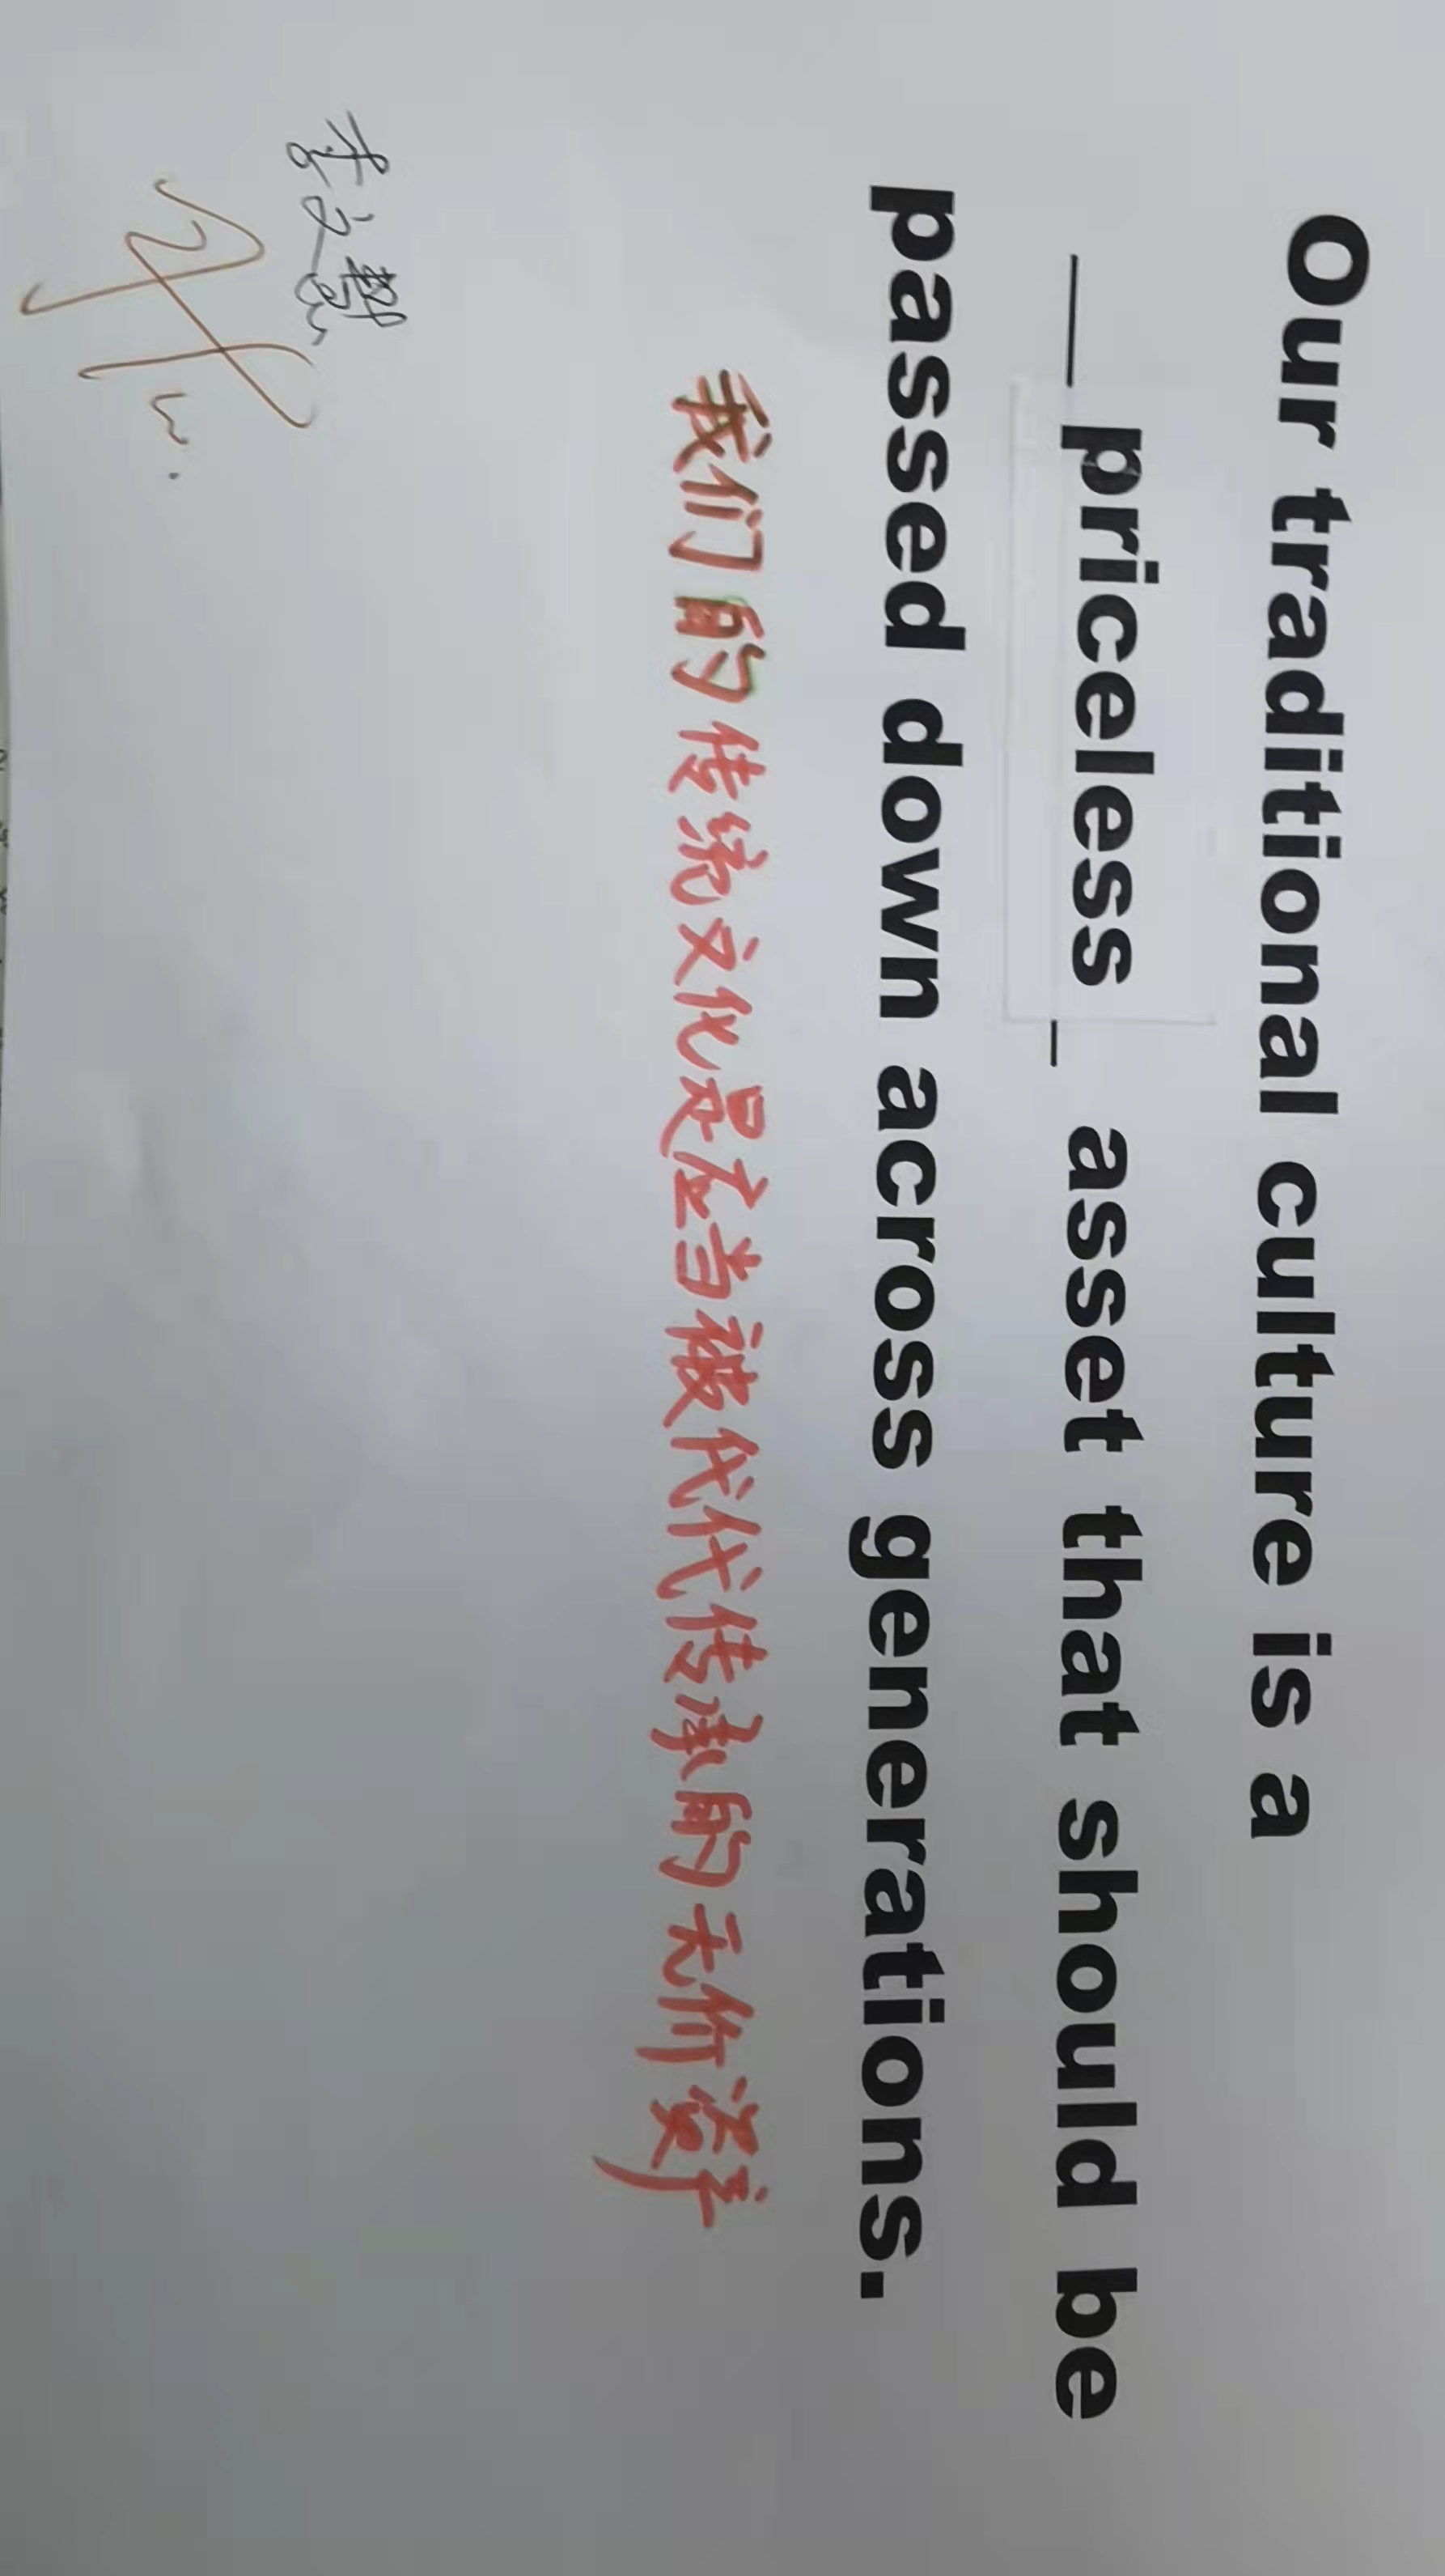 Our traditional culture is a
__ priceless _ asset that should be
passed down across generations.
我们的传统文化是应当被代代传承的无价资产